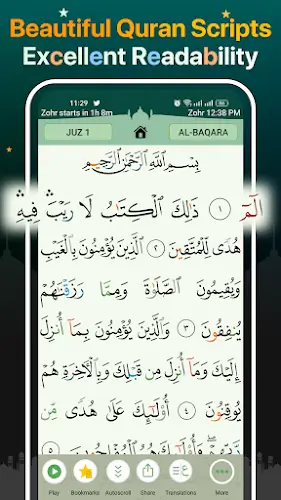 Beautiful Quran Scripts
Excellent Readability
11:29
Zohr starts in 1h 8m
Zohr 12:38 PM
JUZ 1
AL-BAQARA
بِسْمِ اللَّهِ الرَّحْمَٰنِ الرَّحِيمِ
الٓمٓ ١ ذَٰلِكَ الْكِتَٰبُ لَا رَيْبَ ۛ فِيهِ ۛ
هُدًى لِّلْمُتَّقِينَ ٢ الَّذِينَ يُؤْمِنُونَ بِالْغَيْبِ
وَيُقِيمُونَ الصَّلَوٰةَ وَمِمَّا رَزَقْنَٰهُمْ
يُنفِقُونَ ٣ وَالَّذِينَ يُؤْمِنُونَ بِمَآ أُنزِلَ
إِلَيْكَ وَمَآ أُنزِلَ مِن قَبْلِكَ وَبِالْءَاخِرَةِ هُمْ
يُوقِنُونَ ٤ أُو۟لَٰٓئِكَ عَلَىٰ هُدًى مِّن
رَّبِّهِمْ ۖ وَأُو۟لَٰٓئِكَ هُمُ الْمُفْلِحُونَ ٥
Play
Bookmarks
Autoscroll
Share
Translations
More